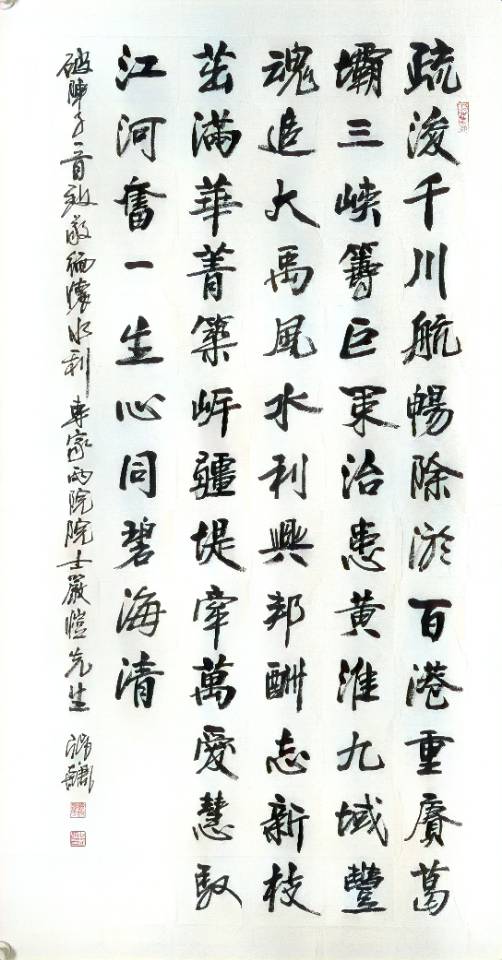 疏浚千川航暢除淤百港重賡葛
壩三峽籌巨策治患黃淮九域豐
魂追大禹風水利興邦酬志新枝
茁滿華菁築岍疆堤牽萬愛慧馭
江河奮一生心同碧海清
破陣子一首致敬緬懷水利專家两院院士嚴愷先生